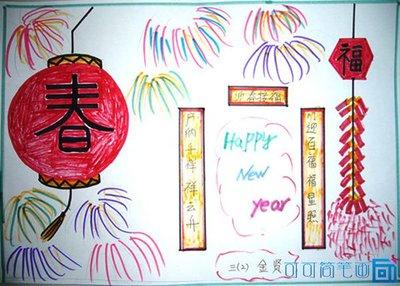 春
福
迎春接福
门迎百福福星照
户纳千祥祥云开
Happy
New
Year
三(2) 金
可可简笔画